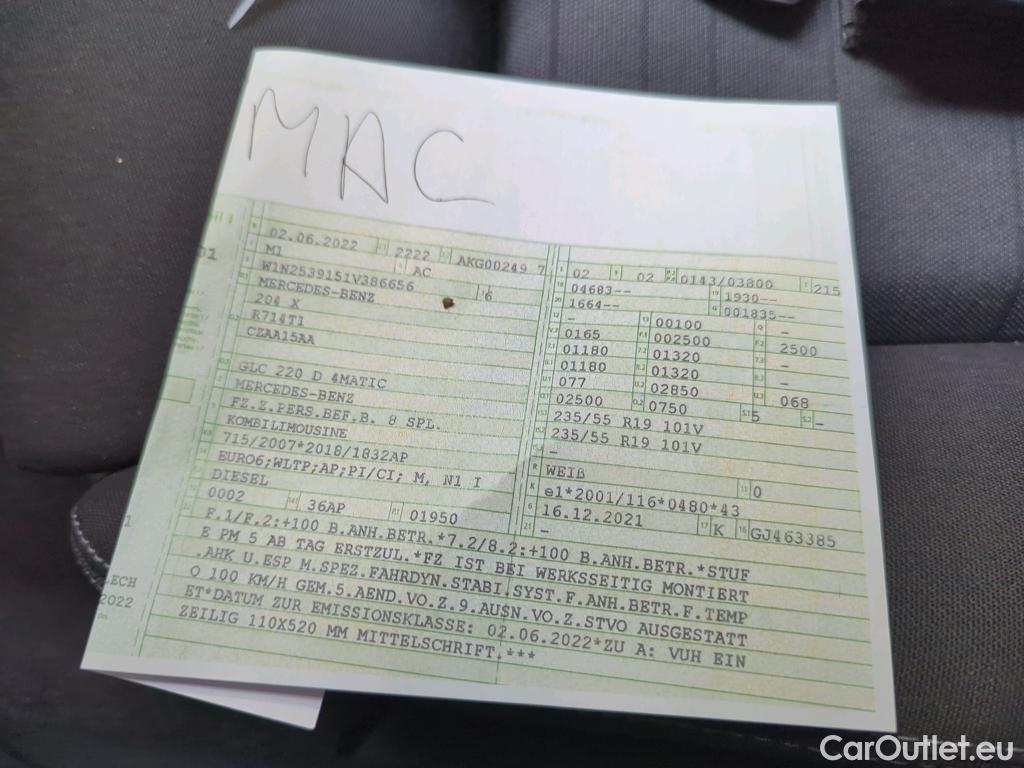 MAC
02.06.2022 2222 AKG00249 7
M1 AC
W1N2539151V386656 6
MERCEDES-BENZ
204 X
R714T1
CZAA15AA
GLC 220 D 4MATIC
MERCEDES-BENZ
FZ.Z.PERS.BEF.B. 8 SPL.
KOMBILIMOUSINE
715/2007*2018/1832AP
EURO6;WLTP;AP;PI/CI; M, N1 I
DIESEL
0002 36AP 01950
02 02 0143/03800 215
04683-- 1930--
1664-- 001835--
- 00100 -
0165 002500 2500
01180 01320 -
01180 01320 -
077 02850 068
02500 0750 5 -
235/55 R19 101V
235/55 R19 101V
-
WEIß 0
e1*2001/116*0480*43
16.12.2021 K GJ463385
-
F.1/F.2:+100 B.ANH.BETR.*7.2/8.2:+100 B.ANH.BETR.*STUF
E PM 5 AB TAG ERSTZUL.*FZ IST BEI WERKSSEITIG MONTIERT
.AHK U.ESP M.SPEZ.FAHRDYN.STABI.SYST.F.ANH.BETR.F.TEMP
O 100 KM/H GEM.5.AEND.VO.Z.9.AUSN.VO.Z.STVO AUSGESTATT
ET*DATUM ZUR EMISSIONSKLASSE: 02.06.2022*ZU A: VUH EIN
ZEILIG 110X520 MM MITTELSCHRIFT.***
LECH
2022
CarOutlet.eu